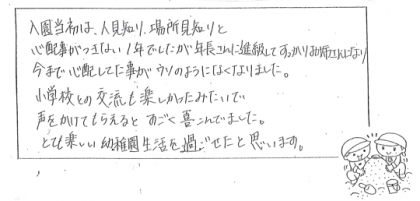 入園当初は、人見知り、場所見知りと
心配事がつきない1年でしたが年長さんに進級してすっかりお姉さんになり
今まで心配してた事がウソのようになくなりました。
小学校との交流も楽しかったみたいで
声をかけてもらえると すごく喜こんでました。
とても楽しい幼稚園生活を過ごせたと思います。